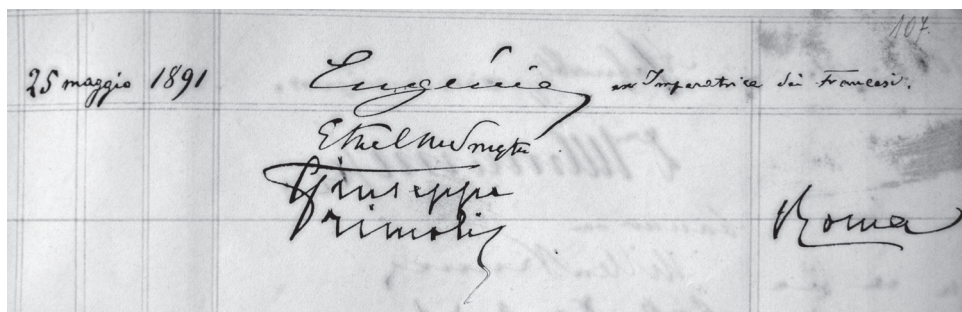 107.
25 maggio 1891 Eugénie ex Imperatrice dei Francesi.
Ethel M Smyth
Giuseppe
Primoli Roma